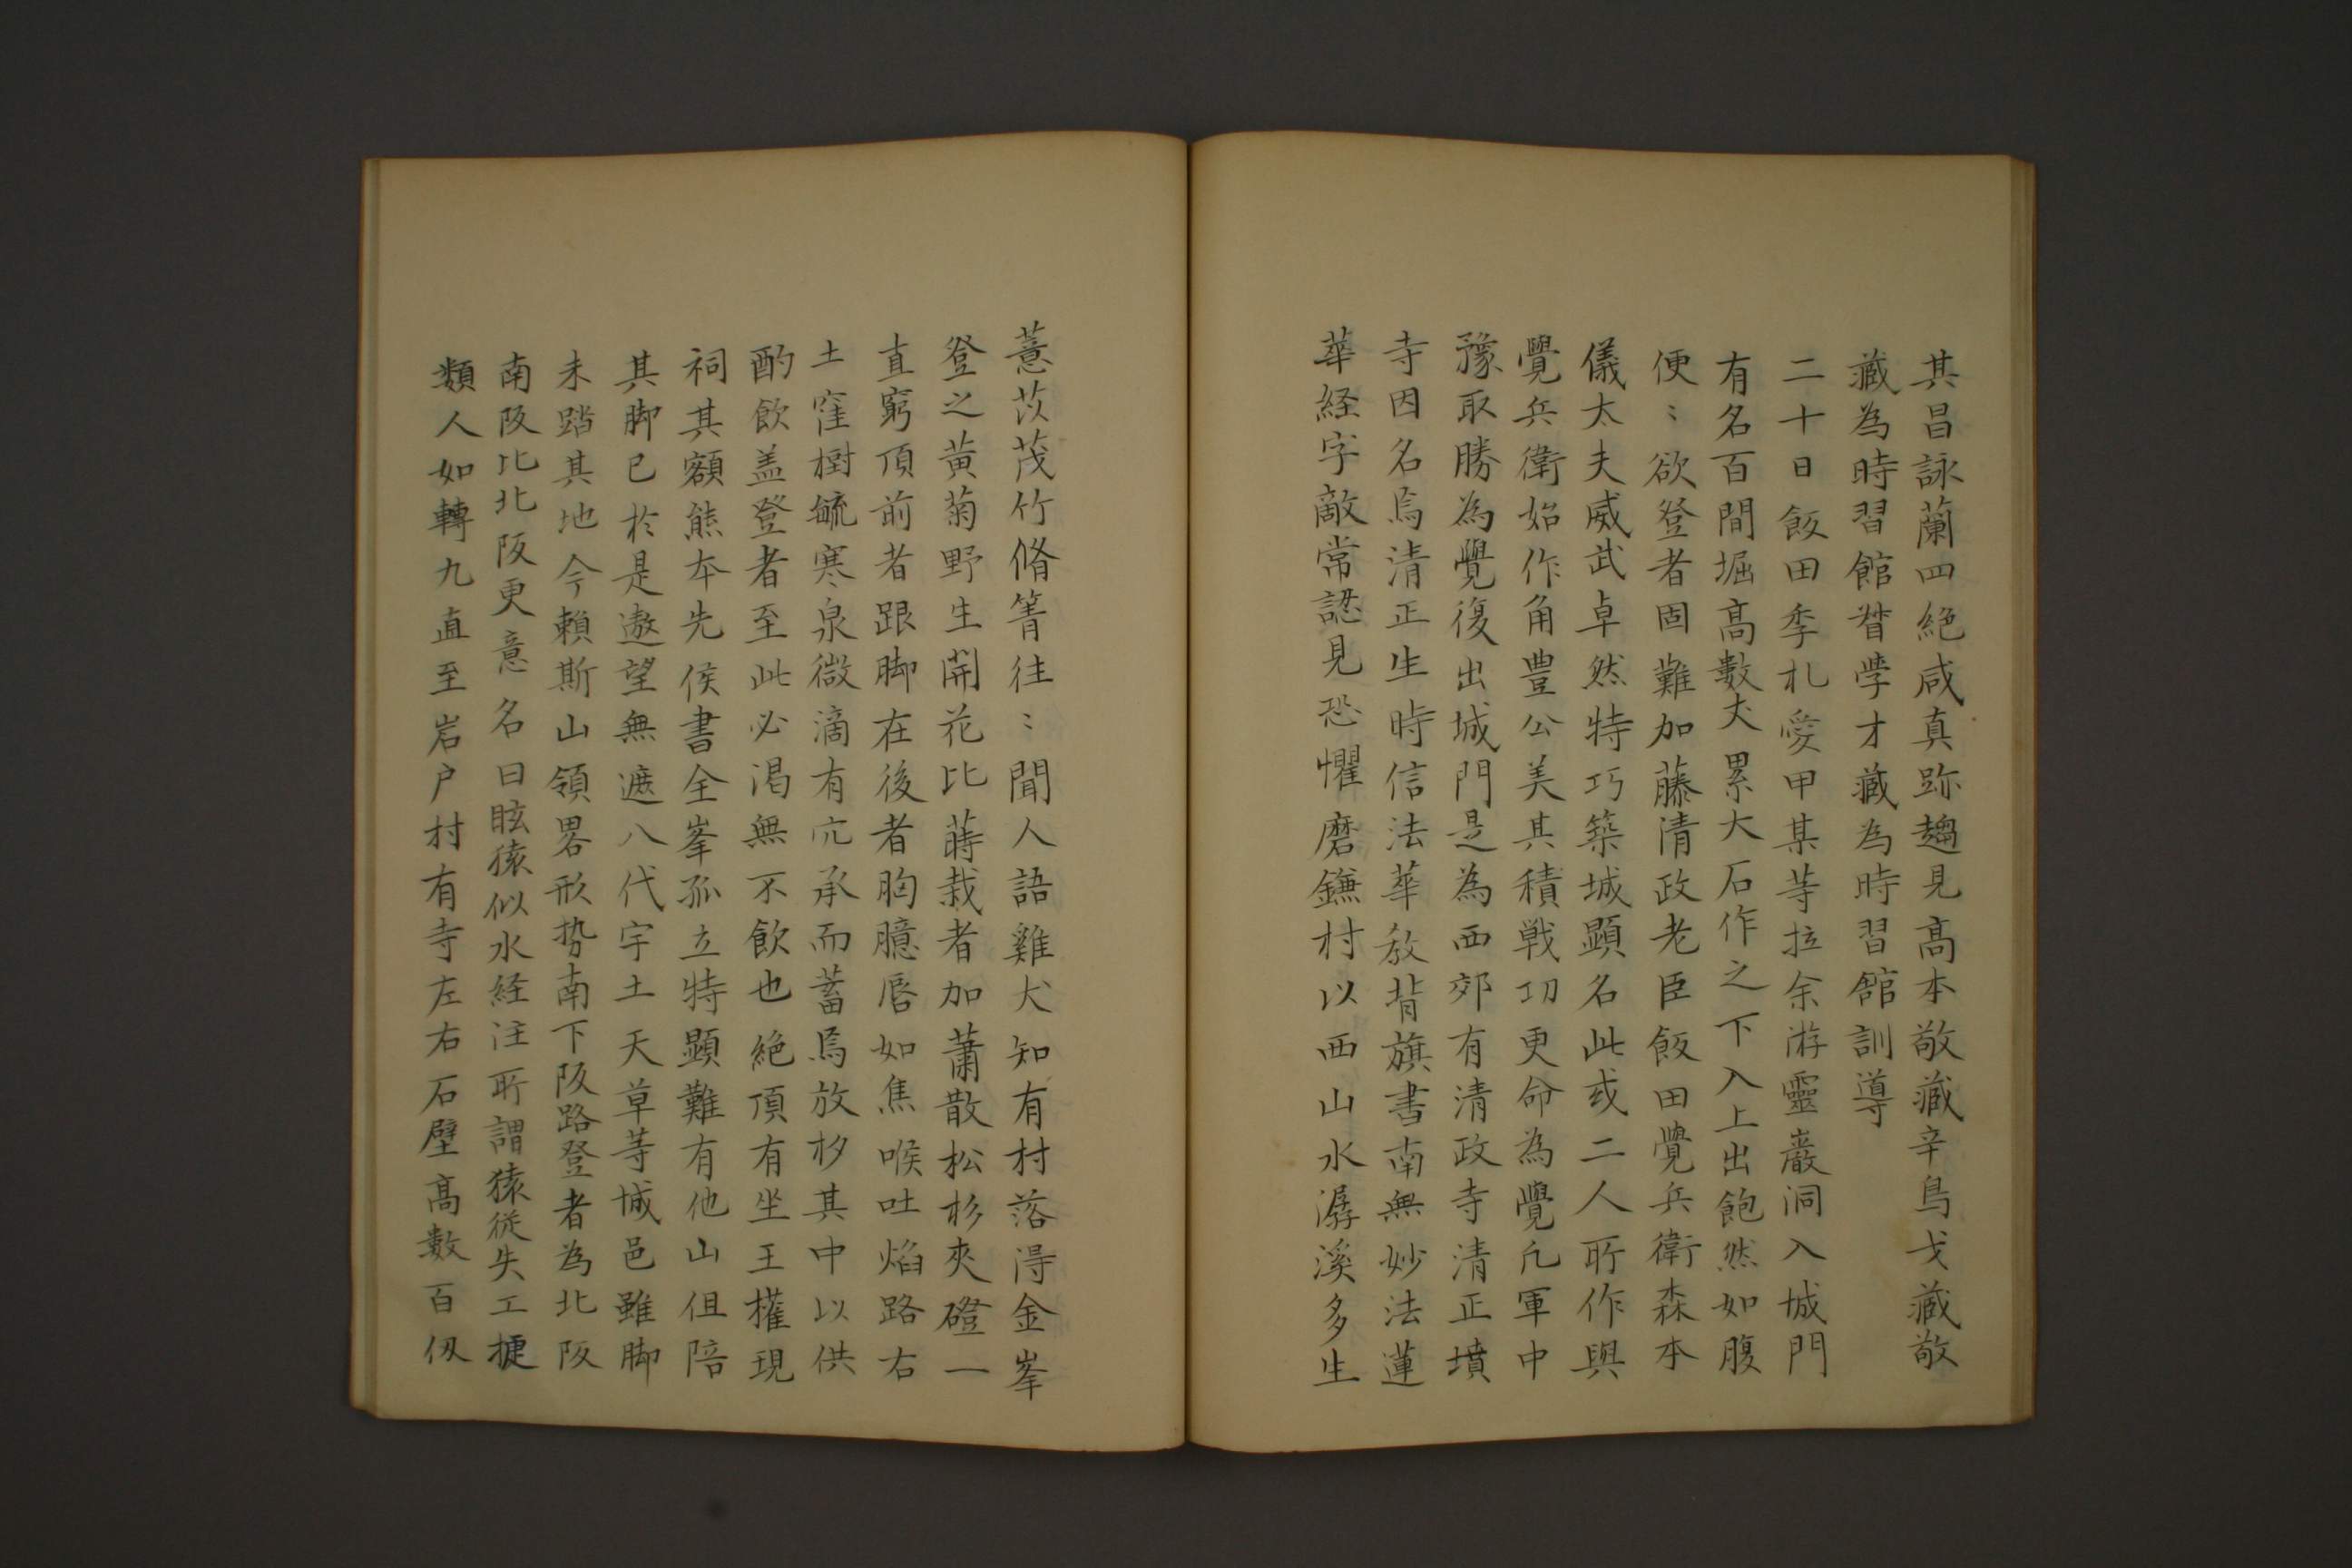 其昌詠蘭四絶咸真跡趨見髙本敬藏辛島戈藏敬
藏為時習館督學才藏為時習館訓導
二十日飯田季札愛甲某等拉余游靈巖洞入城門
有名百間堀髙數丈累大石作之下入上出飽然如腹
便〻欲登者固難加藤清政老臣飯田覺兵衛森本
儀太夫威武卓然特巧築城顕名此或二人所作與
覺兵衛始作角豊公美其積戦功更命為覺凡軍中
豫取勝為覺復出城門是為西郊有清政寺清正墳
寺因名焉清正生時信法華教背旗書南無妙法蓮
華経字敵常認見恐懼磨鎌村以西山水潺溪多生
薏苡茂竹脩箐往〻聞人語雞犬知有村落得金峯
登之黄菊野生開花比蒔栽者加蕭散松杉夾磴一
直窮頂前者跟脚在後者胸臆唇如焦喉吐焰路右
土窪樹毓寒泉微滴有宂承而蓄焉放杉其中以供
酌飲盖登者至此必渇無不飲也絶頂有坐王權現
祠其額熊本先侯書全峯孤立特顕難有他山伹陪
其脚已於是遨望無遮八代宇土天草等城邑雖脚
未踏其地今頼斯山領畧形势南下阪路登者為北阪
南阪比北阪更意名曰眩猿似水経注所謂猿従失工捷
類人如轉九直至岩户村有寺左右石壁髙數百仭